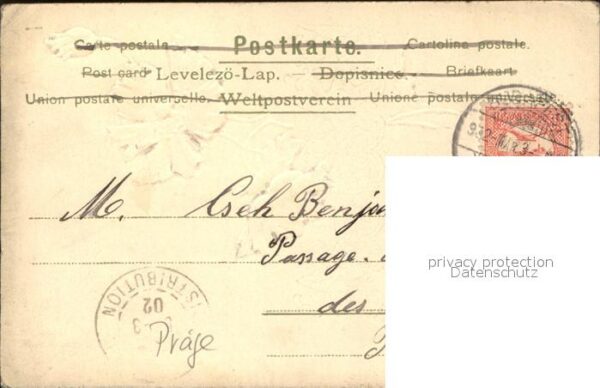 Carte postale. Postkarte. Cartolina postale.
Post card Levelezö-Lap. — Dopisnice. Briefkaart
Union postale universelle. Weltpostverein Unione postale universale
M. Cseh Benja
Passage.
des
privacy protection
Datenschutz
DISTRIBUTION
02
Práge